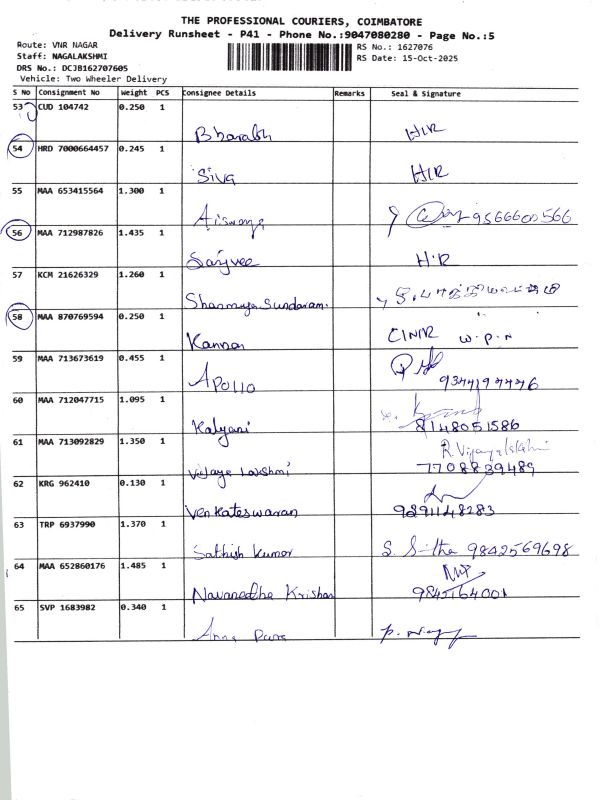 THE PROFESSIONAL COURIERS, COIMBATORE
Delivery Runsheet - P41 - Phone No.:9047080280 - Page No.:5
Route: VNR NAGAR
Staff: NAGALAKSHMI
DRS No.: DCJB162707605
Vehicle: Two Wheeler Delivery
RS No.: 1627076
RS Date: 15-Oct-2025
S No Consignment No Weight PCS Consignee Details Remarks Seal & Signature
53 CUD 104742 0.250 1
Bharath
54 HRD 7000664457 0.245 1
Siva
55 MAA 653415564 1.300 1
Aiswarya 9566600566
56 MAA 712987826 1.435 1
Sanjvee H.R
57 KCM 21626329 1.260 1
Shanmuga Sundaram.
58 MAA 870769594 0.250 1
Kannan W.P.N
59 MAA 713673619 0.455 1
APOLLO 9344194446
60 MAA 712047715 1.095 1
Kalyani 8148051586
61 MAA 713092829 1.350 1
R.Vijayalakshmi
Vijaya Lakshmi 7708839489
62 KRG 962410 0.130 1
Venkateswaran 9891148283
63 TRP 6937990 1.370 1
Sathish Kumar S. Sitha 9842569698
64 MAA 652860176 1.485 1
Navaneetha Krishnan 9842164001
65 SVP 1683982 0.340 1
Anna